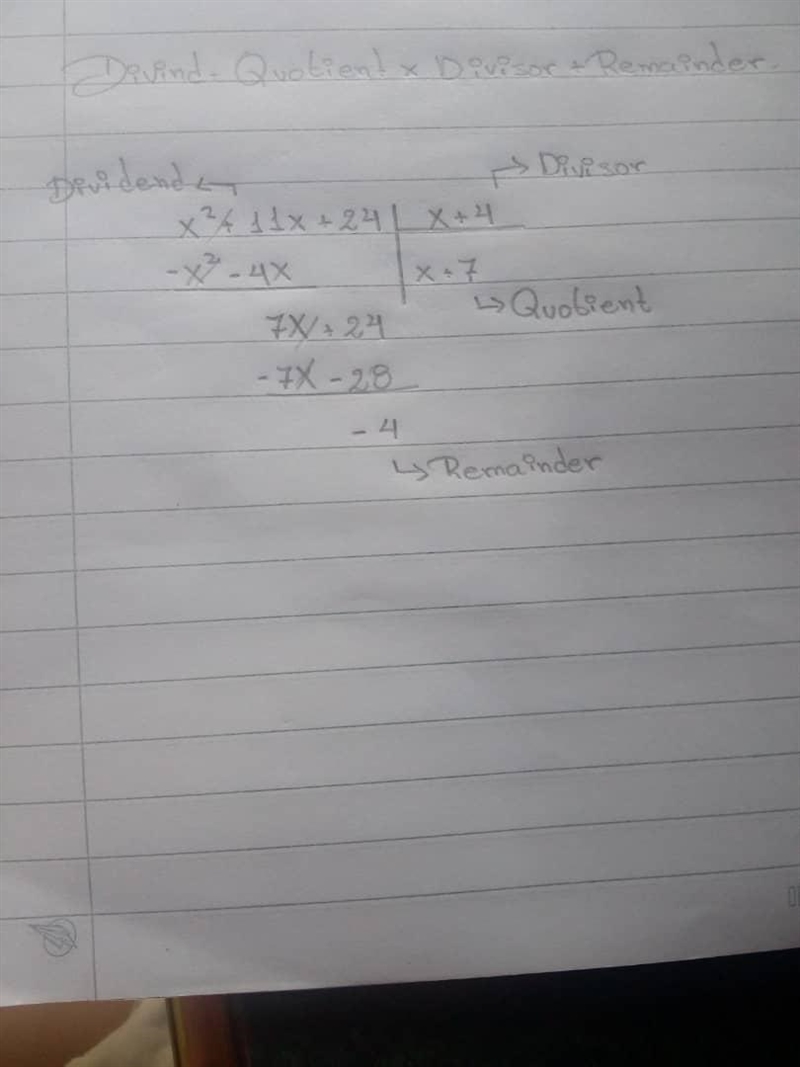 Divind = Quotient x Divisor + Remainder.
Dividend ↩ ↱ Divisor
x² + 11x + 24 | x + 4
-x² - 4x | x + 7
↳ Quotient
7x + 24
-7x - 28
- 4
↳ Remainder